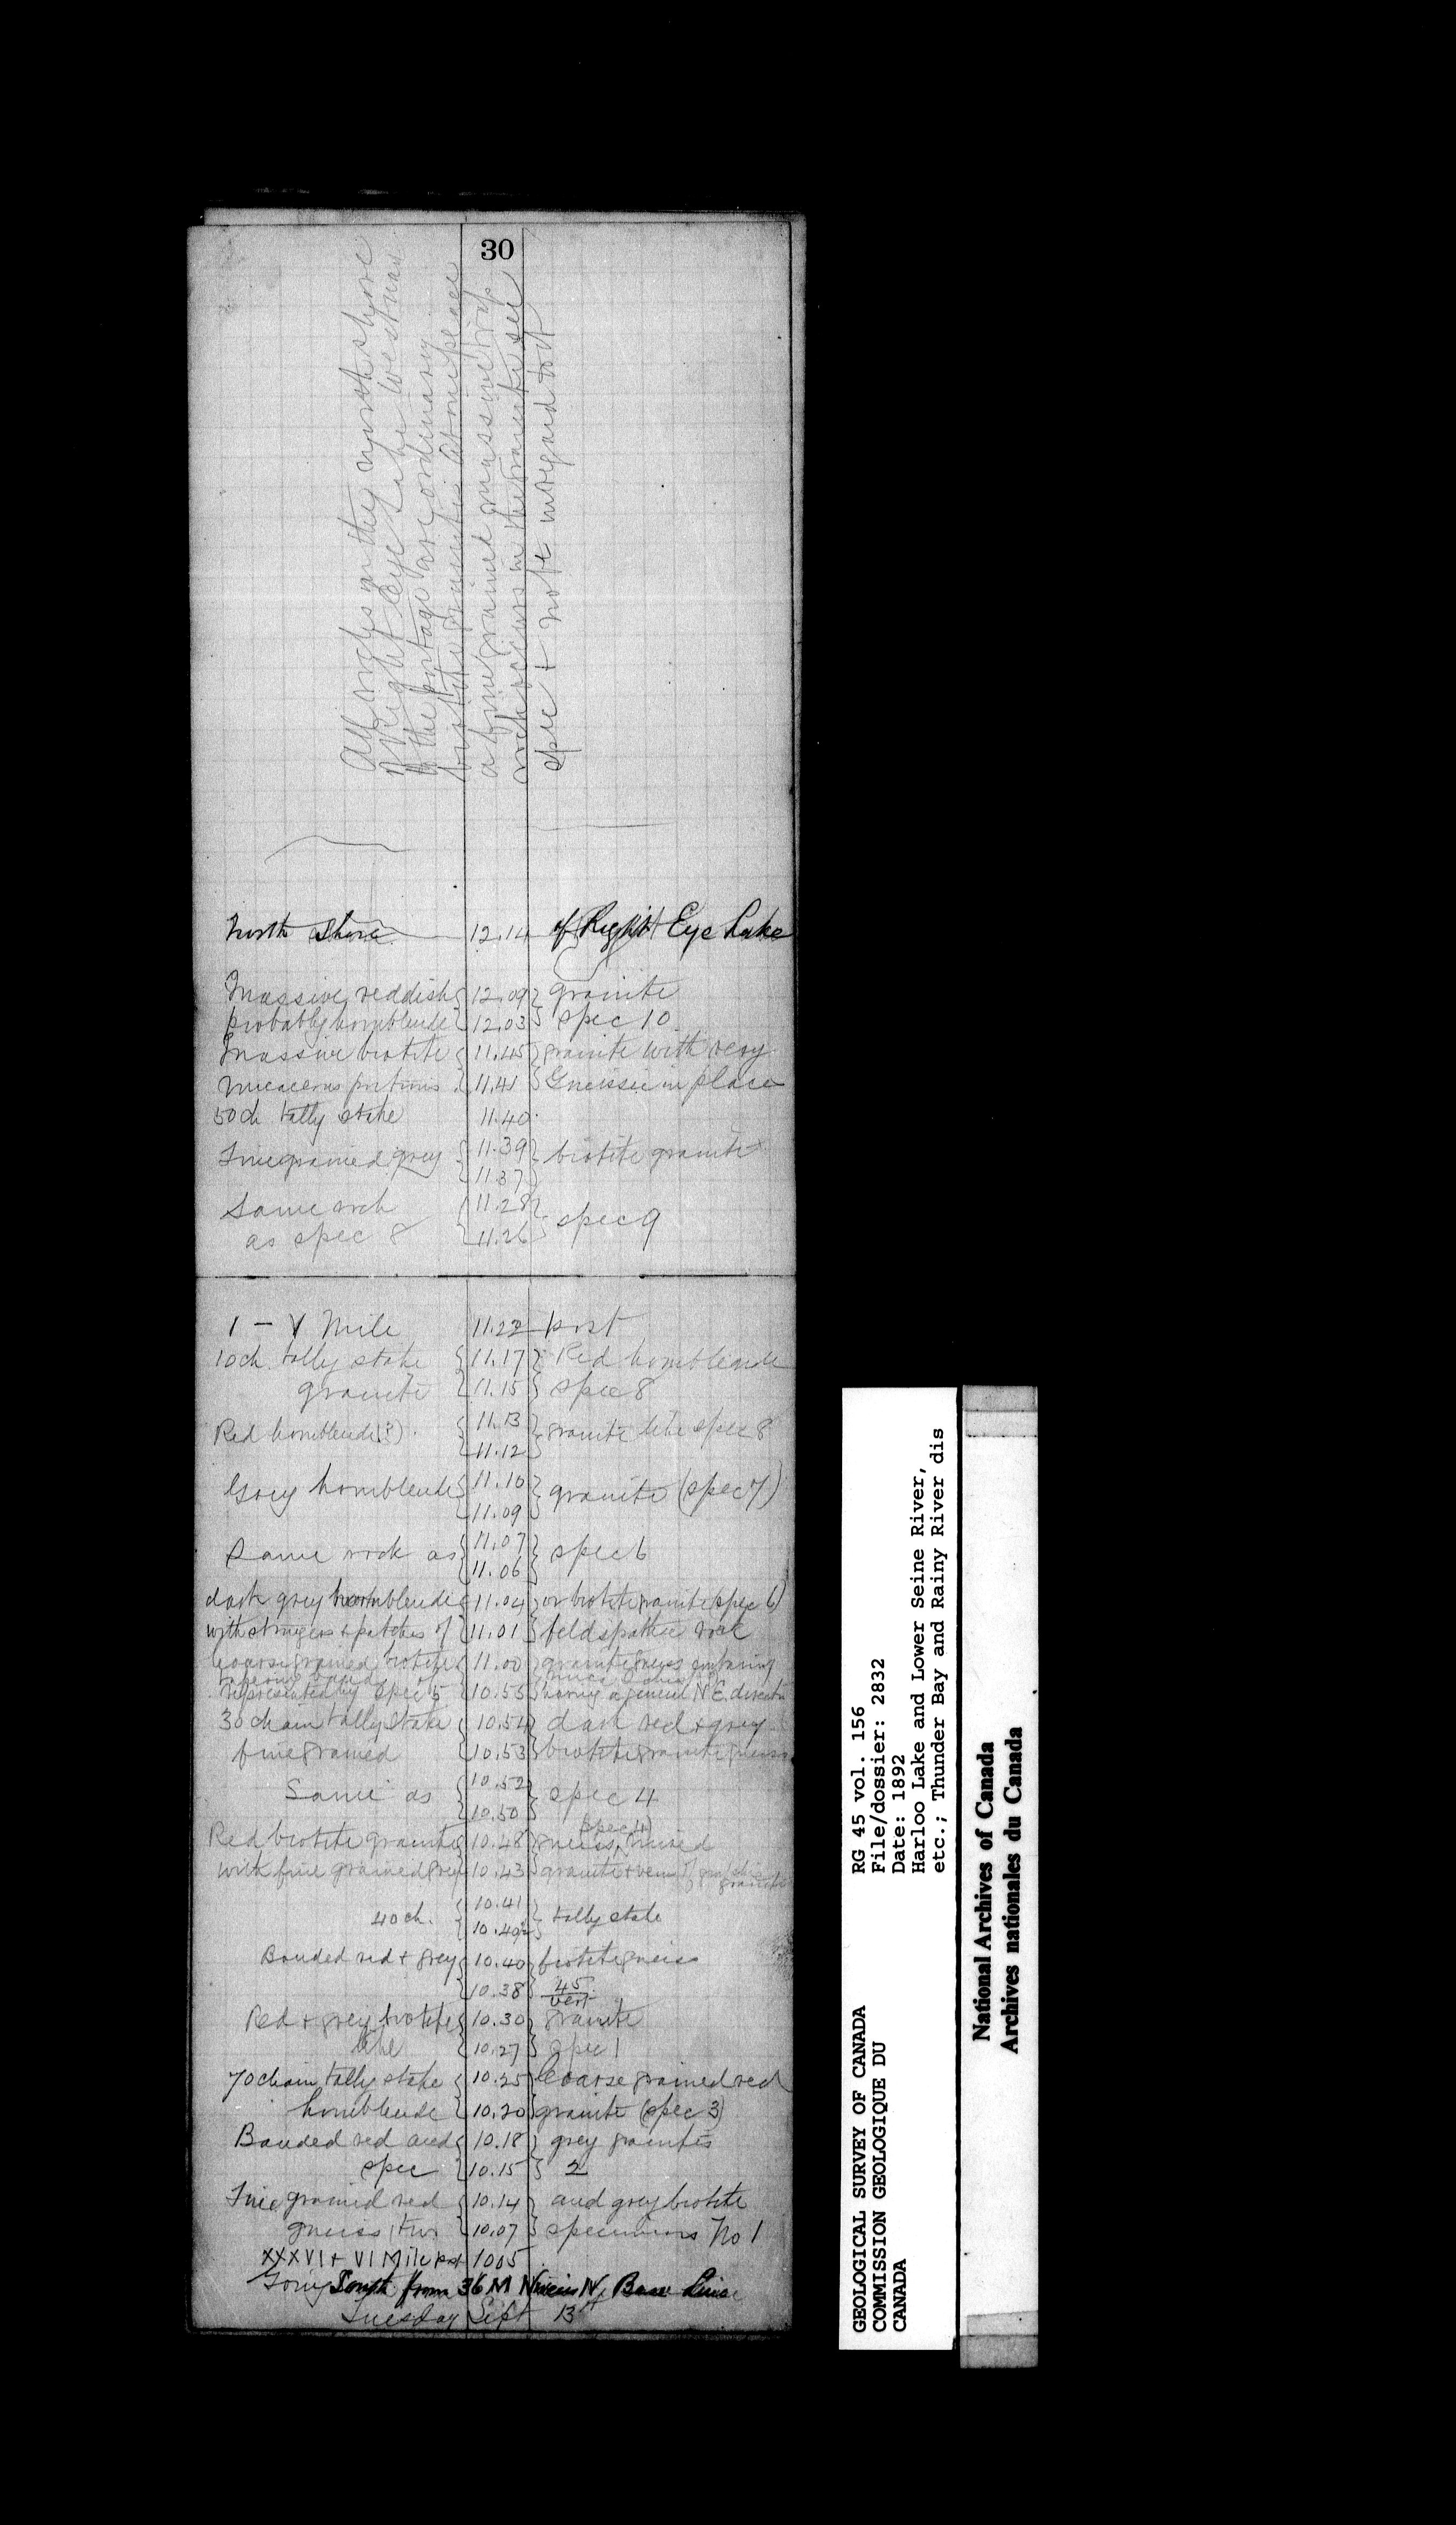 30
All rocks on the north shore
of Right Eye Lake westward
of the portage are ordinary
biotite granite. At one place
a fine grained massive trap
rock occurs in the granite see
spec + note in regard to it
North Shore 12.14 of Right Eye Lake
Massive reddish 12.09 granite
probably hornblende 12.03 spec 10
Massive biotite 11.45 granite with very
micaceous portions 11.41 Gneissic in place
50 ch tally stake 11.40
Fine grained grey 11.39 biotite granite
11.37
Same rock 11.28 spec 9
as spec 8 11.26
1 - V Mile 11.22 post
10 ch. tally stake 11.17 Red hornblende
granite 11.15 spec 8
Red hornblende (?) 11.13 granite like spec 8
11.12
Grey hornblende 11.10 granite (spec 7)
11.09
Same rock as 11.07 spec 6
11.06
dark grey hornblende 11.04 or biotite granite (spec 6)
with stringers + patches of 11.01 feldspathic rock
Coarse grained biotite 11.00 granite gneiss
represented by spec 5 10.55 having a general N.E. direction
30 chain tally stake 10.54 dark red + grey
fine grained 10.53 biotite granite gneiss
Same as 10.52 spec 4
10.50
(spec 4)
Red biotite granite 10.48 gneiss, mixed
with fine grained grey 10.43 granite + veins of
granite
40 ch. 10.41 tally stake
10.40½
Banded red + grey 10.40 biotite gneiss
10.38 45
vert.
Red + grey biotite 10.30 granite
like 10.27 spec 1
70 chain tally stake 10.25 Coarse grained red
hornblende 10.20 granite (spec 3)
Banded red and 10.18 grey granites
spec 10.15 2
Fine grained red 10.14 and grey biotite
gneiss, two 10.07 specimens No 1
XXXVI + VI Mile post 1005
Going South from 36 M Nivens N. Base Line
Tuesday Sept 13th
GEOLOGICAL SURVEY OF CANADA
COMMISSION GEOLOGIQUE DU
CANADA
RG 45 vol. 156
File/dossier: 2832
Date: 1892
Harloo Lake and Lower Seine River,
etc.; Thunder Bay and Rainy River dis
National Archives of Canada
Archives nationales du Canada